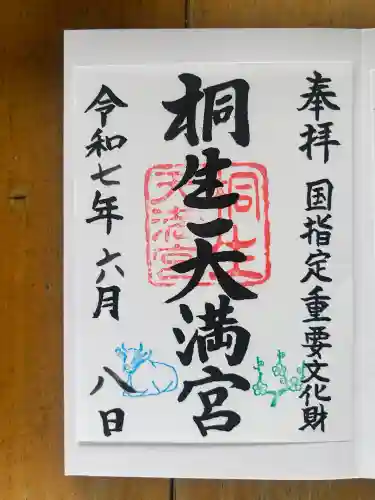 奉拝 国指定重要文化財
桐生天満宮
桐生天満宮
令和七年六月八日